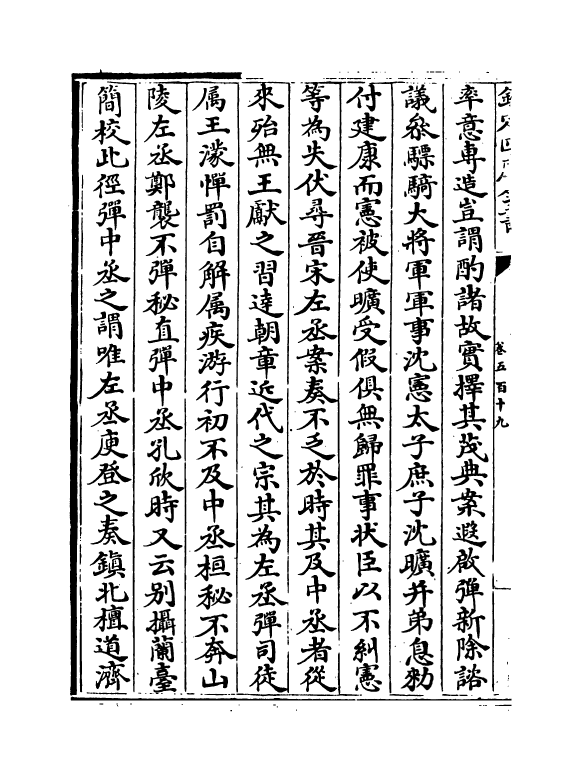 欽定四庫全書
卷五百十九
率意專造豈謂酌諸故實擇其茂典案遐啟彈新除諮
議參驃騎大將軍軍事沈憲太子庶子沈曠并弟息勑
付建康而憲被使曠受假俱無歸罪事狀臣以不糾憲
等為失伏尋晉宋左丞案奏不乏於時其及中丞者從
來殆無王獻之習達朝章近代之宗其為左丞彈司徒
属王濛憚罰自解属疾游行初不及中丞桓秘不奔山
陵左丞鄭襲不彈秘直彈中丞孔欣時又云别攝蘭臺
簡校此徑彈中丞之謂唯左丞庾登之奏鎮北檀道濟